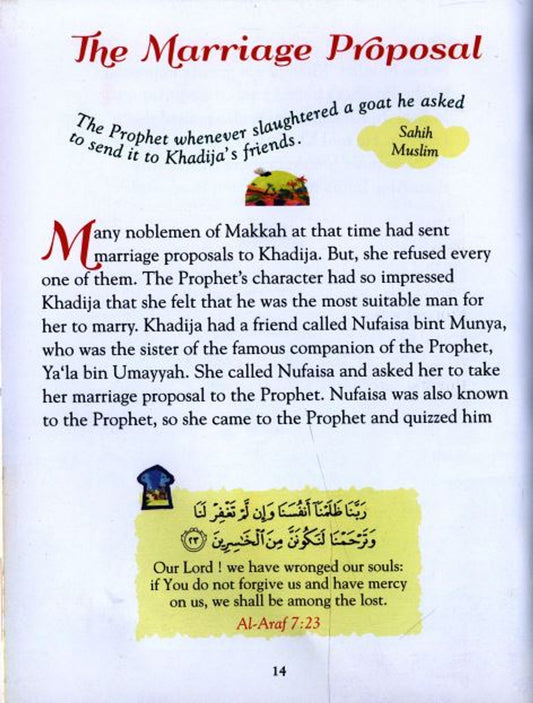 The Marriage Proposal
The Prophet whenever slaughtered a goat he asked
to send it to Khadija's friends.
Sahih
Muslim
Many noblemen of Makkah at that time had sent
marriage proposals to Khadija. But, she refused every
one of them. The Prophet's character had so impressed
Khadija that she felt that he was the most suitable man for
her to marry. Khadija had a friend called Nufaisa bint Munya,
who was the sister of the famous companion of the Prophet,
Ya'la bin Umayyah. She called Nufaisa and asked her to take
her marriage proposal to the Prophet. Nufaisa was also known
to the Prophet, so she came to the Prophet and quizzed him
رَبَّنَا ظَلَمْنَآ أَنفُسَنَا وَإِن لَّمْ تَغْفِرْ لَنَا
وَتَرْحَمْنَا لَنَكُونَنَّ مِنَ ٱلْخَٰسِرِينَ ٢٣
Our Lord ! we have wronged our souls:
if You do not forgive us and have mercy
on us, we shall be among the lost.
Al-Araf 7:23
14